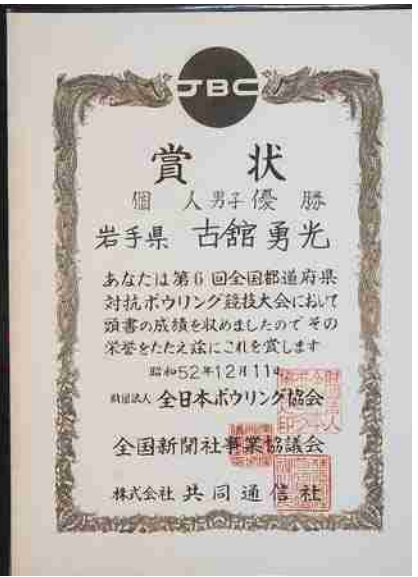 JBC
賞状
個人男子優勝
岩手県 古舘勇光
あなたは第6回全国都道府県
対抗ボウリング競技大会において
頭書の成績を収めましたのでその
栄誉をたたえ茲にこれを賞します
昭和52年12月11日
財団法人 全日本ボウリング協会
全国新聞社事業協議会
株式会社 共同通信社